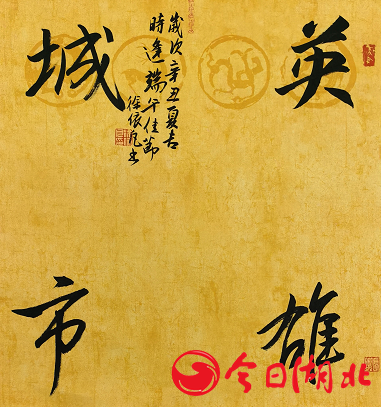 英雄
城市
歲次辛丑夏吉
時逢端午佳節
徐依凡书
今日湖北